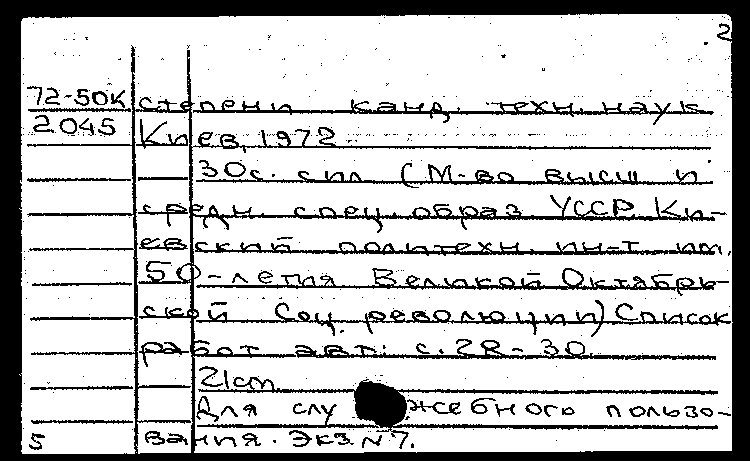 2
72-50К степени канд. техн. наук
2045 Киев, 1972
30с. сил (М-во высш и
средн. спец. образ УССР. Ки-
евский политехн. ин-т им.
50-летия Великой Октябрь-
ской Соц. революции) Список
работ авт: с. 28-30.
21cm
Для служебного пользо-
5 вания. Экз. N 7.